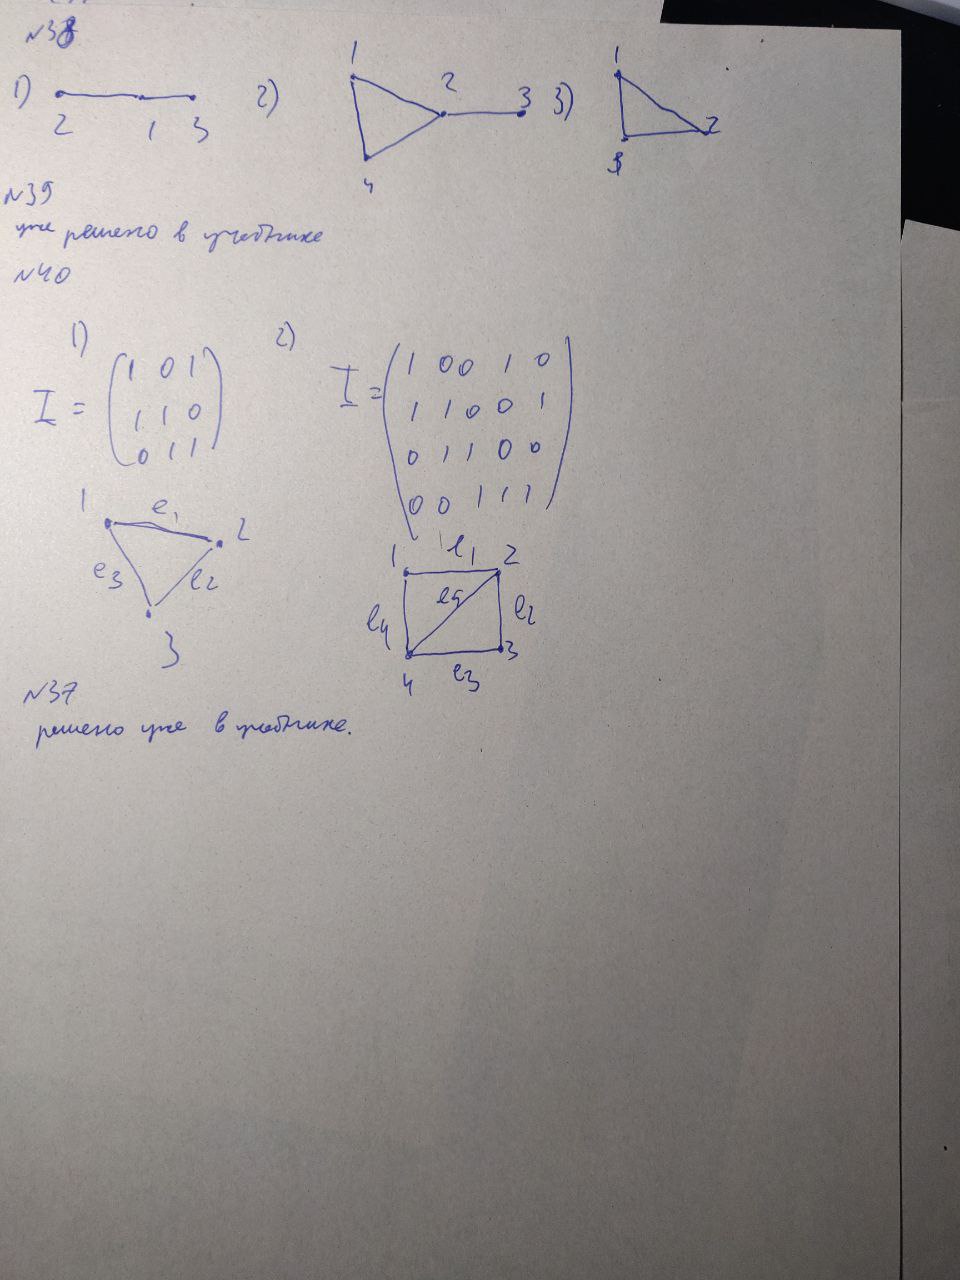 №38
1) 2 1 3
2) 1 2 3 4
3) 1 2 3
№39
уже решено в учебнике
№40
1)
I = (1 0 1
1 1 0
0 1 1)
1 e1 2
e3 e2
3
2)
I = (1 0 0 1 0
1 1 0 0 1
0 1 1 0 0
0 0 1 1 1)
1 e1 2
e4 e5 e2
4 e3 3
№37
решено уже в учебнике.